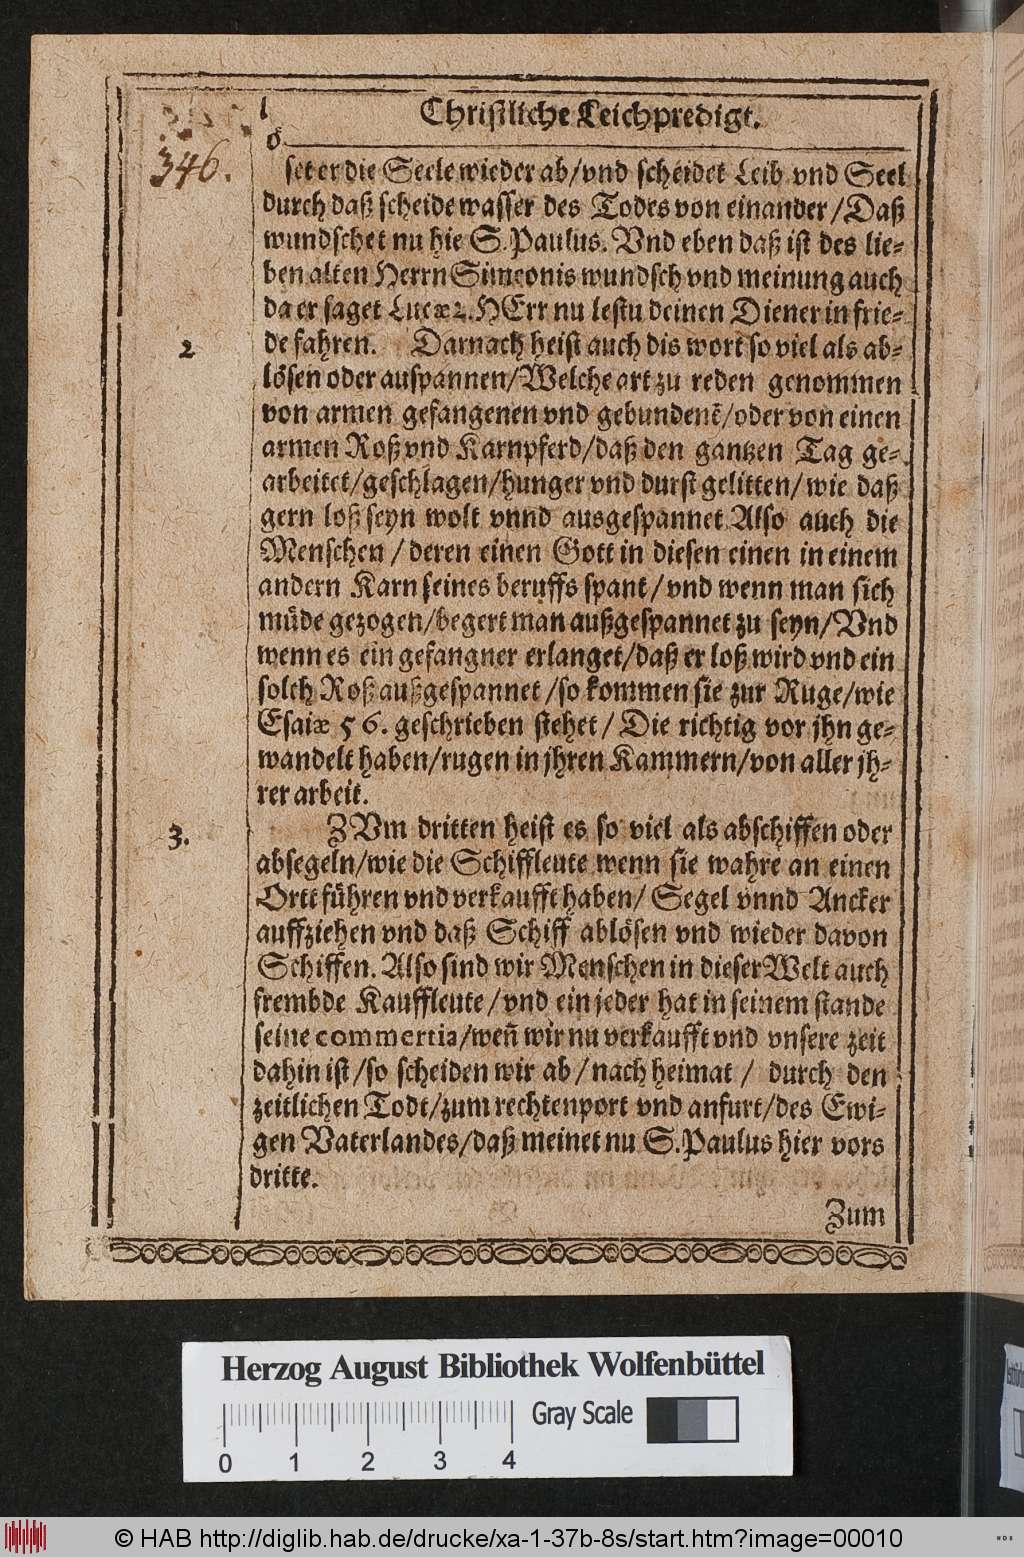 Christliche Leichpredigt.
346.
set er die Seele wieder ab/ vnd scheidet Leib vnd Seel
durch daß scheidewasser des Todes von einander/ Daß
wundschet nu hie S. Paulus. Vnd eben daß ist des lie-
ben alten Herrn Simeonis wundsch vnd meinung auch
da er saget Lucæ 2. HErr nu lestu deinen Diener in frie-
2
de fahren. Darnach heist auch dis wort so viel als ab-
lösen oder auspannen/ Welche art zu reden genommen
von armen gefangenen vnd gebundenē/ oder von einen
armen Roß vnd Karnpferd/ daß den gantzen Tag ge-
arbeitet/ geschlagen/ hunger vnd durst gelitten/ wie daß
gern loß seyn wolt vnnd ausgespannet Also auch die
Menschen / deren einen Gott in diesen einen in einem
andern Karn seines beruffs spant/ vnd wenn man sich
müde gezogen/ begert man außgespannet zu seyn/ Vnd
wenn es ein gefangner erlanget/ daß er loß wird vnd ein
solch Roß außgespannet /so kommen sie zur Ruge/ wie
Esaiæ 56. geschrieben stehet/ Die richtig vor jhn ge-
wandelt haben/ rugen in jhren Kammern/ von aller jh-
rer arbeit.
3.
ZVm dritten heist es so viel als abschiffen oder
absegeln/ wie die Schiffleute wenn sie wahre an einen
Ortt führen vnd verkaufft haben/ Segel vnnd Ancker
auffziehen vnd daß Schiff ablösen vnd wieder davon
Schiffen. Also sind wir Menschen in dieser Welt auch
frembde Kauffleute/ vnd ein jeder hat in seinem stande
seine commertia/ weñ wir nu verkaufft vnd vnsere zeit
dahin ist /so scheiden wir ab/ nach heimat / durch den
zeitlichen Todt/ zum rechten port vnd anfurt/ des Ewi-
gen Vaterlandes/ daß meinet nu S. Paulus hier vors
dritte.
Zum
Herzog August Bibliothek Wolfenbüttel
Gray Scale
0 1 2 3 4
© HAB http://diglib.hab.de/drucke/xa-1-37b-8s/start.htm?image=00010